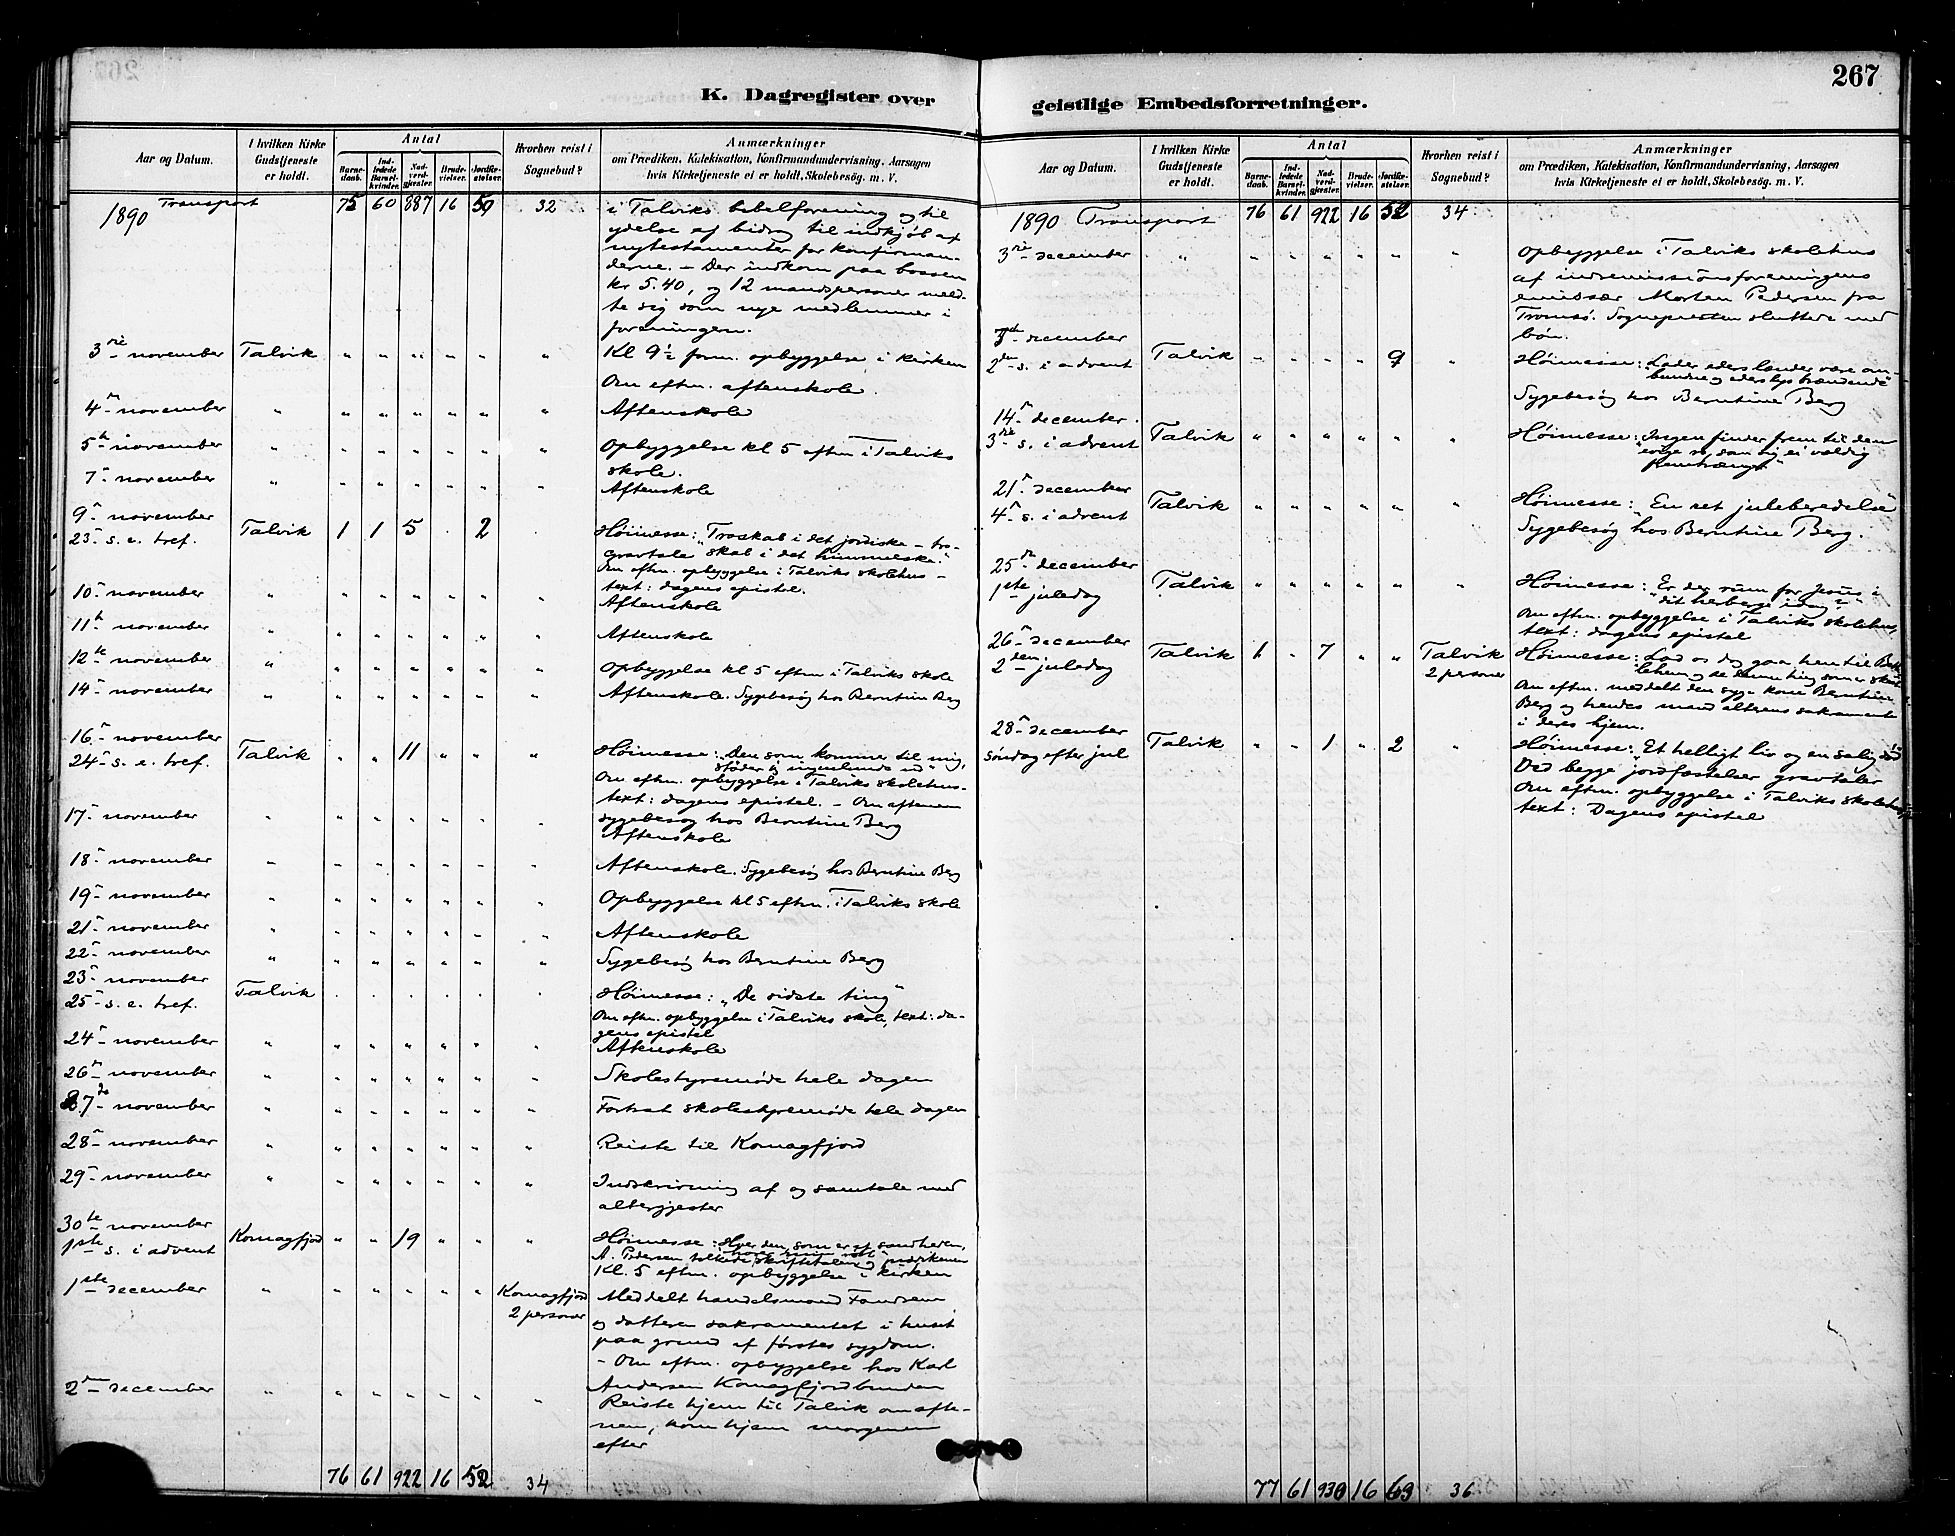 267
K. Dagregister over
Aar og Datum.
I hvilken Kirke Gudstjeneste er holdt.
Antal
Barnedaab.
Indledede Barselkvinder.
Nadverdgjester.
Brudevielser.
Jordfæstelser.
Hvorhen reist i Sognebud?
Anmærkninger
om Prædiken, Katekisation, Konfirmandundervisning, Aarsagen
hvis Kirketjeneste ei er holdt, Skolebesøg. m. V.
1890 Transport 75 60 887 16 50 32 i Talviks bibelforening og til
ydelse af bidrag til indkjøb af
nytestamenter for konfirman-
derne. – Der indkom paa bøssen
kr 5.40, og 12 mandspersoner meld-
te sig som nye medlemmer i
foreningen.
3die november Talvik " " " " " " Kl 9½ form. opbyggelse i kirken
Om eftm. aftenskole.
4de november " " " " " " " Aftenskole
5te november " " " " " " " Opbyggelse kl 5 eftm i Talviks
skole.
7de november " " " " " " " Aftenskole
9de november
23de s. e. tref. Talvik 1 1 5 . 2 . Høimesse: „Troskab i det jordiske – tro-
gravtale skab i det himmelske."
Om eftm. opbyggelse i Talviks skolehus –
text: dagens epistel.
10de november " " " " " " " Aftenskole
11te november " " " " " " " Aftenskole
12te november " " " " " " " Opbyggelse kl 5 eftm i Talviks skole
14de november " " " " " " " Aftenskole. Sygebesøg hos Berntine Berg
16de november
24de s. e. tref. Talvik " " 11 " " " Høimesse: „Den som kommer til mig,
støder jeg ingenlunde ud"
Om eftm. opbyggelse i Talviks skolehus –
text: dagens epistel. – Om aftenen
sygebesøg hos Berntine Berg
17de november " " " " " " " Aftenskole
18de november " " " " " " " Aftenskole. Sygebesøg hos Berntine Berg
19de november " " " " " " " Opbyggelse kl 5 eftm. i Talviks skole
21de november " " " " " " " Aftenskole
22de november " " " " " " " Sygebesøg hos Berntine Berg
23de november
25de s. e. tref. Talvik . . . . . . Høimesse: „De sidste ting"
Om eftm. opbyggelse i Talviks skole, text: da-
gens epistel
24de november " " " " " " " Aftenskole
26de november " " " " " " " Skolestyremøde hele dagen
27de november " " " " " " " Fortsat skolestyremøde hele dagen
28de november " " " " " " " Reiste til Komagfjord
29de november " " " " " " " Indskrivning af og samtale med
altergjester
30te november
1ste s. i advent Komagfjord " " 19 " " " Høimesse: Hver den, som er af sandheden,
hører min røst"
A. Pedersen tolkede skriftetalen og prædikenen
Kl. 5 eftm. opbyggelse i kirken
1ste december " " " " " " Komagfjord 2 personer Meddelt handelsmand
og datteren sakramentet i huset
paa grund af førstes sygdom.
– Om eftm. opbyggelse hos Karl
Andersen Komagfjordbunden
2den december " " " " " " " Reiste hjem til Talvik om afte-
nen, kom hjem morgenen
efter
76 61 922 16 52 34
geistlige Embedsforretninger.
Aar og Datum.
I hvilken Kirke Gudstjeneste er holdt.
Antal
Barnedaab.
Indledede Barselkvinder.
Nadverdgjester.
Brudevielser.
Jordfæstelser.
Hvorhen reist i Sognebud?
Anmærkninger
om Prædiken, Katekisation, Konfirmandundervisning, Aarsagen
hvis Kirketjeneste ei er holdt, Skolebesøg. m. V.
1890 Transport 76 61 922 16 52 34
3die december " " " " " " " Opbyggelse i Talviks skolehus
af indremissionsforeningens
emissær Morten Pedersen fra
Tromsø. Sognepresten sluttede med
bøn.
7de december
2den s. i advent Talvik " " " " 9 " Høimesse: „Lader eders lænder være om-
bundne og eders lys brændende"
Sygebesøg hos Berntine Berg
14de december.
3die s. i advent Talvik " " " " " " Høimesse: „Ingen finder frem til den
evige ro, som sig ei vældig
fremtrængt"
21de december
4de s. i advent Talvik " " " " " " Høimesse: „En ret juleberedelse"
Sygebesøg hos Berntine Berg.
25de december
1ste juledag Talvik " " " " " " Høimesse: „Er der rum for Jesus i
dit herberge idag?"
Om eftm. opbyggelse i Talviks skolehus,
text: dagens epistel
26de december
2den juledag Talvik 1 " 7 " " Talvik 2 personer Høimesse: „Lad os dog gaa hen til Beth-
lehem og se denne ting som er skeet"
Om eftm. meddelt den syge kone Berntine
Berg og hendes mand alterens sakramente
i deres hjem.
28de december
Søndag efter jul Talvik " " 1 " 2 " Høimesse: „Et helligt liv og en salig død"
Ved begge jordfæstelser gravtaler
Om eftm. opbyggelse i Talviks skolehus,
text: Dagens epistel
77 61 930 16 63 36